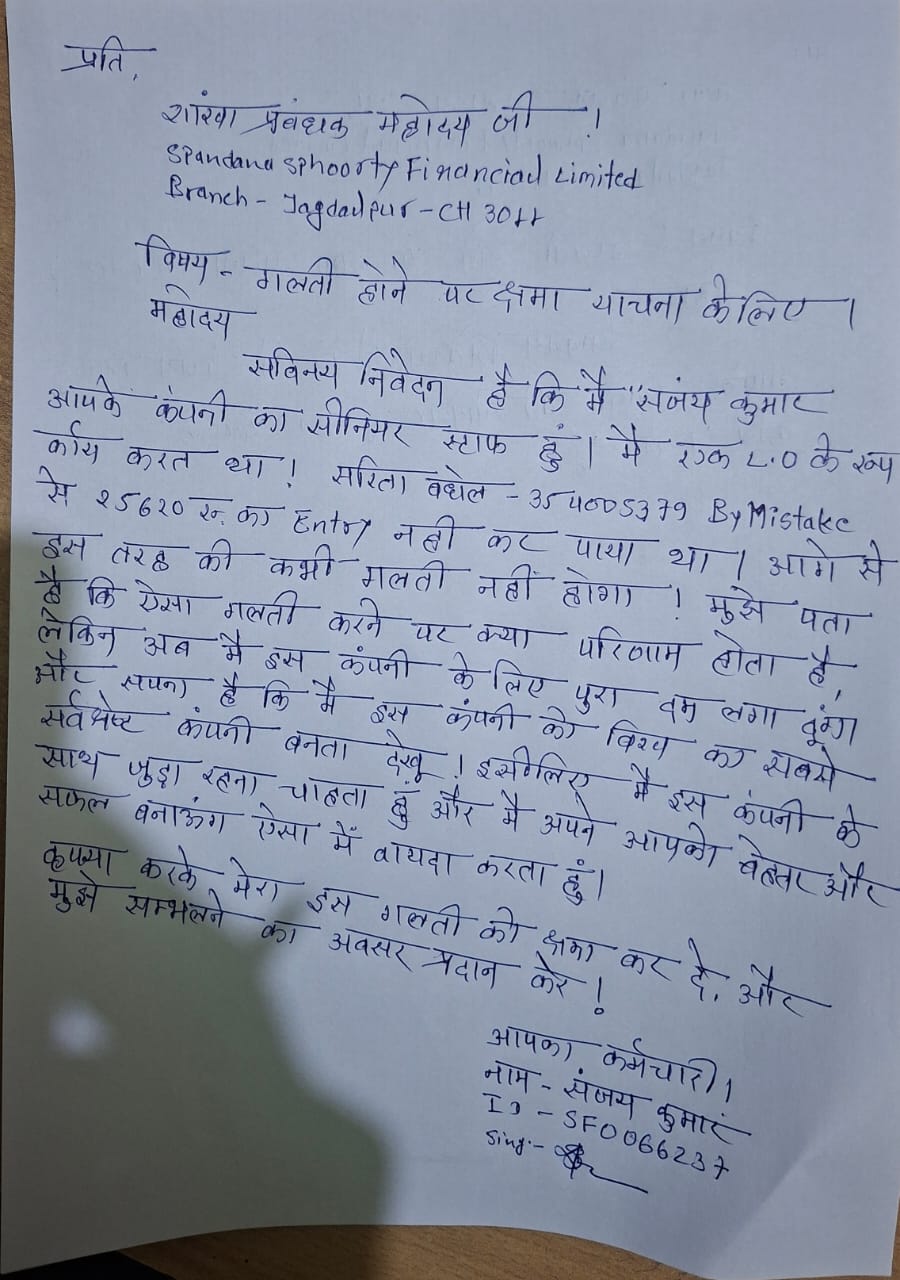 प्रति,
शांखा प्रबंधक महोदय जी !
Spandana Sphoorty Financial Limited
Branch - Jagdalpur - CH 3011
विषय - गलती होने पर क्षमा याचना के लिए ।
महोदय
सविनय निवेदन है कि मै "संजय कुमार
आपके कंपनी का सीनियर स्टाफ हुं। मै एक L.O के रूप
र्काय करत था ! सरिता बघेल - 354005379 By Mistake
से 25620 रू. का Entry नही कर पाया था । आगे से
इस तरह की कभी गलती नहीं होगा ! मुझे पता
है कि ऐसा गलती करने पर क्या परिणाम होता है,
लेकिन अब मै इस कंपनी के लिए पुरा दम लगा दूंगा
और सपना है कि मै इस कंपनी को विश्व का सबसे
सर्वश्रेष्ट कंपनी बनता देखू ! इसीलिए मै इस कंपनी के
साथ जुड़ा रहना चाहता हुं और मै अपने आपको बेहतर और
सफल बनाऊंग ऐसा में वायदा करता हुं।
कृपया करके मेरा इस गलती को क्षमा कर दे, और
मुझे सम्भलने का अवसर प्रदान करे !
आपका कर्मचारी।
नाम - संजय कुमार
ID - SF0066237
Sing:-